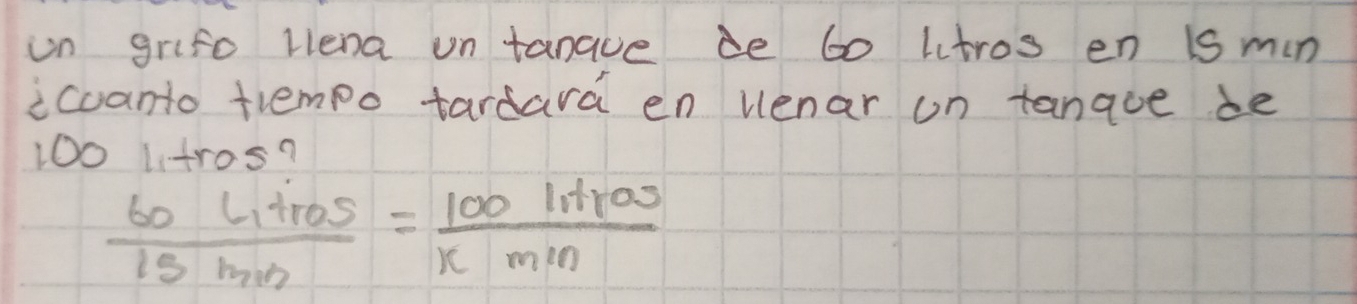 un grifo llena un tanque de 60 litros en 15 min
¿cuanto tiempo tardará en llenar un tanque de
100 litros?
60 Litros = 100 litros
15 min x min